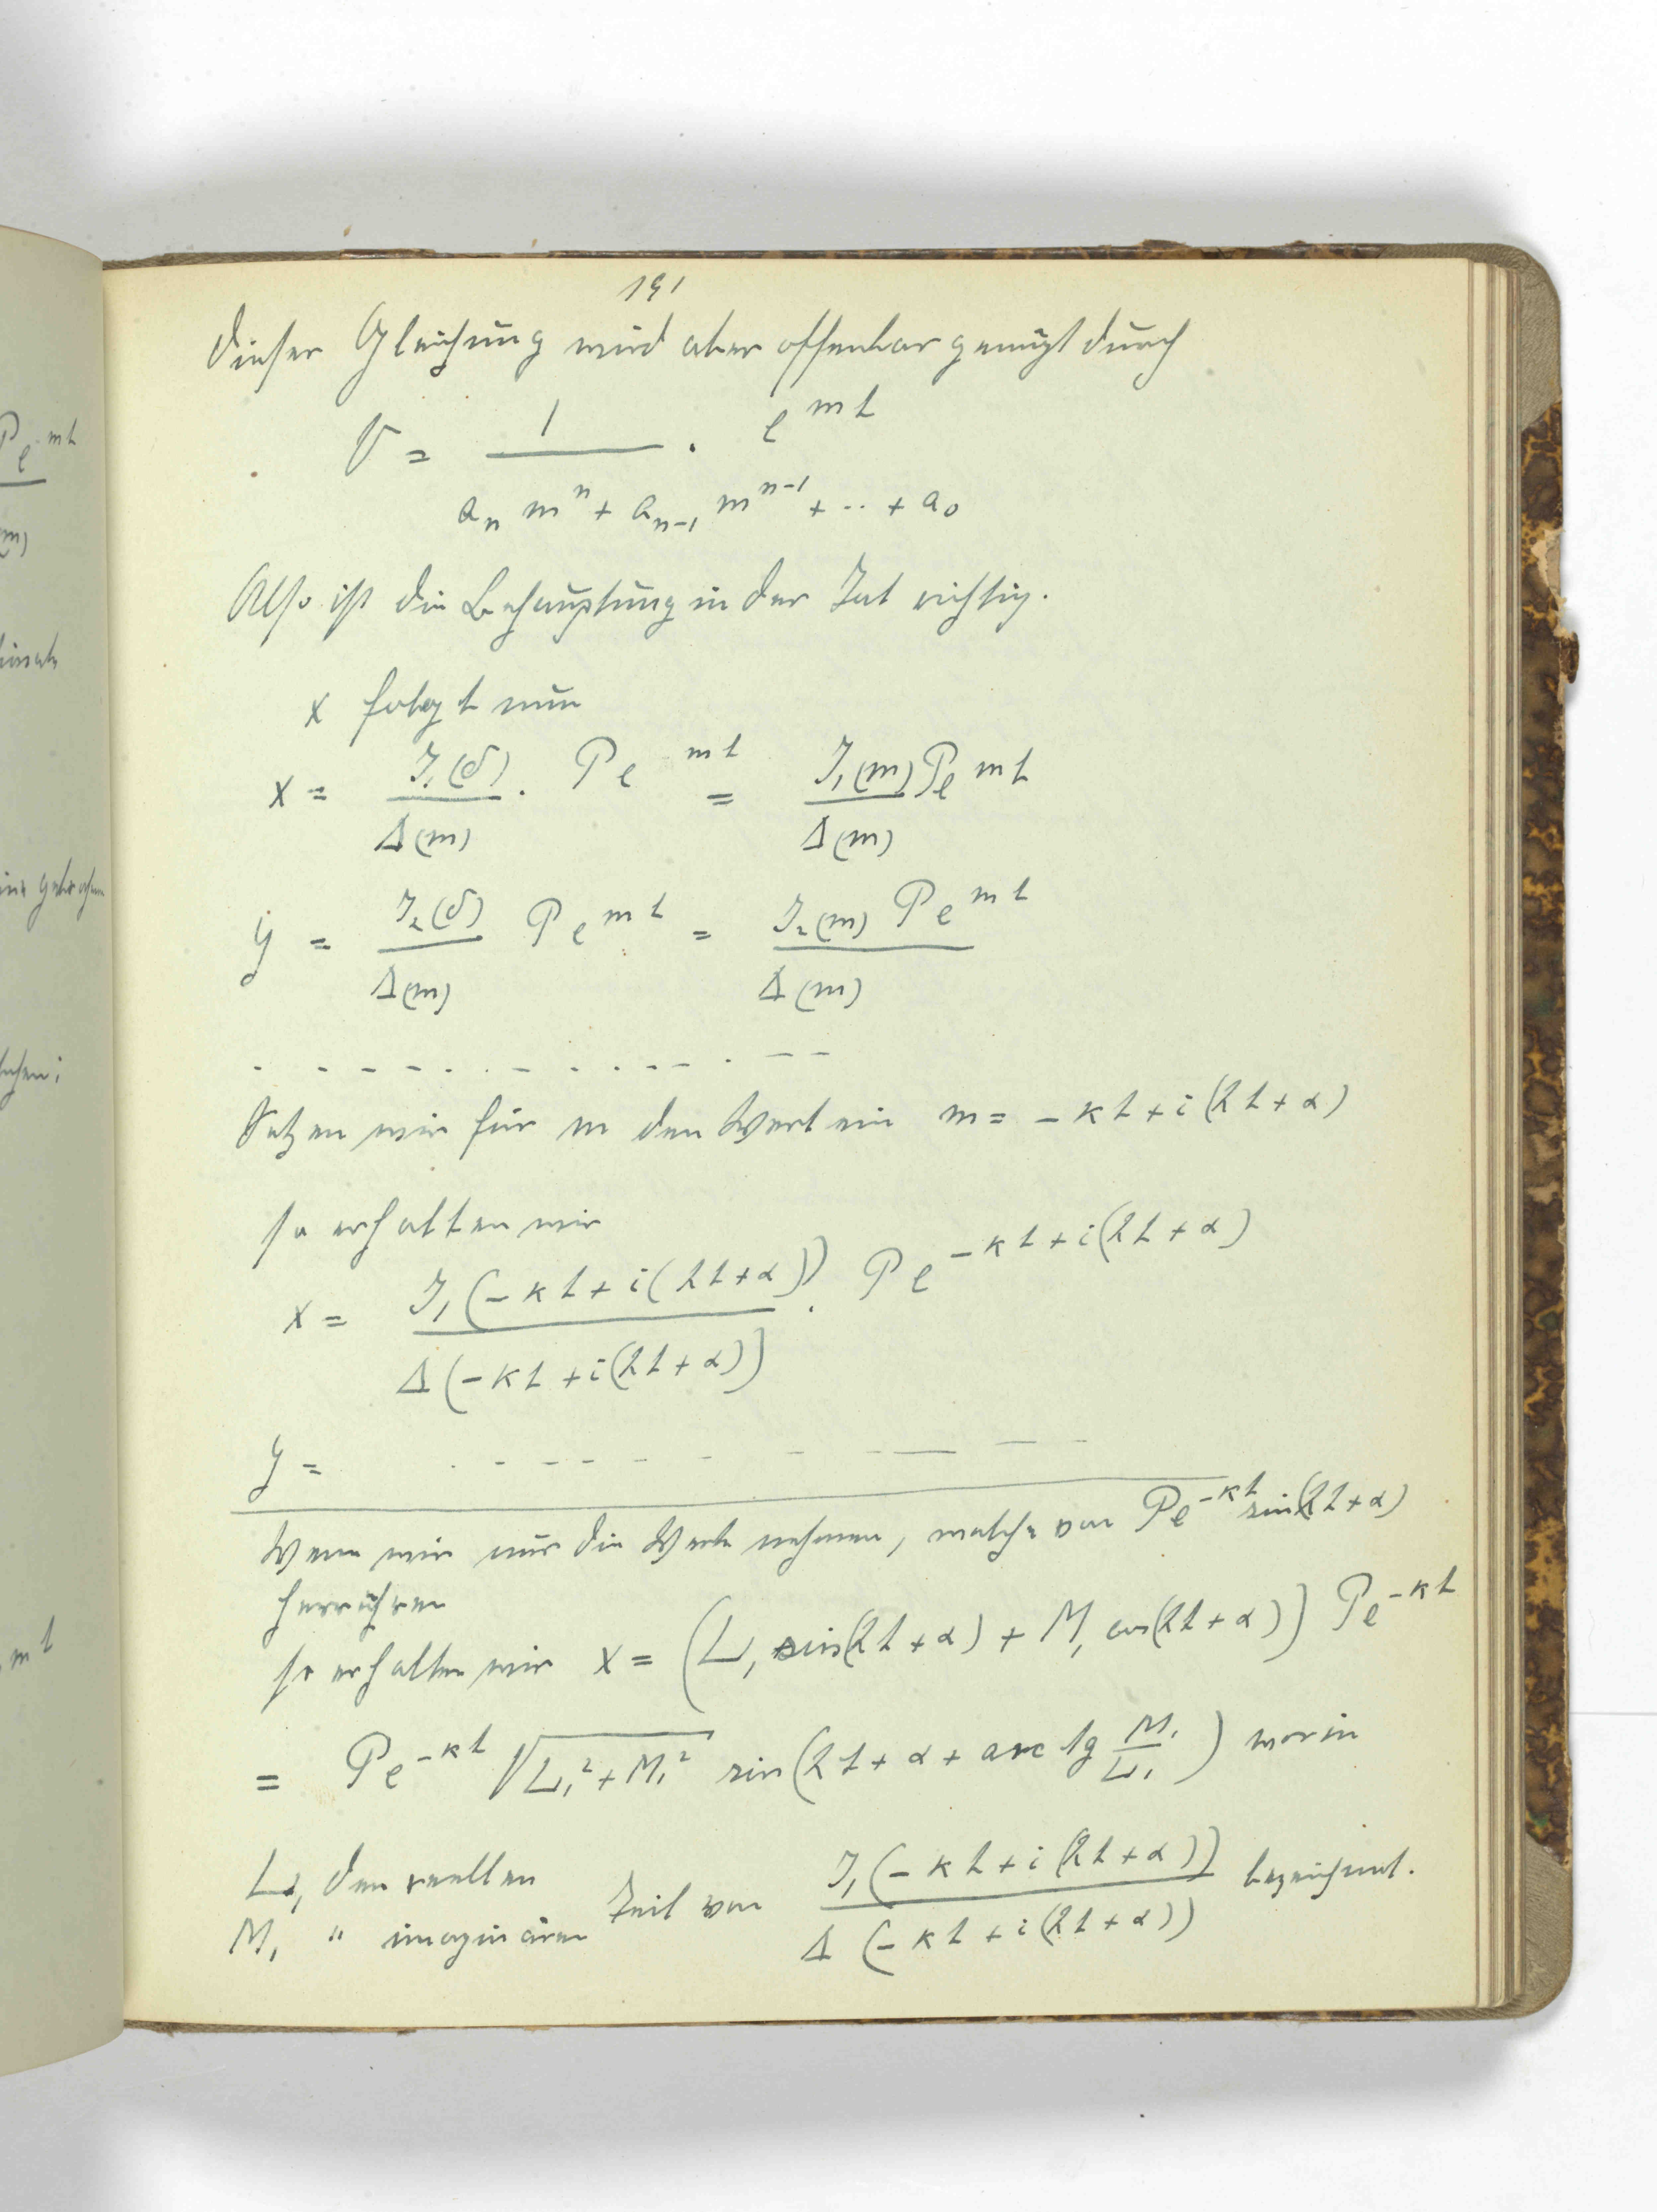 191
dieser Gleichung wird aber offenbar genügt durch
V = 1 / (aₙ mⁿ + aₙ₋₁ mⁿ⁻¹ + ·· + a₀) · e^{mt}
Also ist die Behauptung in der Tat richtig.
x folgt nun
x = J₁(δ) / Δ(m) · P e^{mt} = J₁(m) P e^{mt} / Δ(m)
y = J₂(δ) / Δ(m) P e^{mt} = J₂(m) P e^{mt} / Δ(m)
Setzen wir für m den Wert ein m = -κt + i(λt + α)
so erhalten wir
x = J₁(-κt + i(λt+α)) / Δ(-κt + i(λt+α)) · P e^{-κt + i(λt + α)}
y =
Wenn wir nur die Werte nehmen, welche von P e^{-κt} sin(λt+α)
herrühren
so erhalten wir x = (L₁ sin(λt+α) + M₁ cos(λt+α)) P e^{-κt}
= P e^{-κt} √(L₁² + M₁²) sin(λt + α + arc tg M₁/L₁) worin
L₁ den reellen
M₁ " imaginären Teil von J₁(-κt + i(λt+α)) / Δ(-κt + i(λt+α)) bezeichnet.